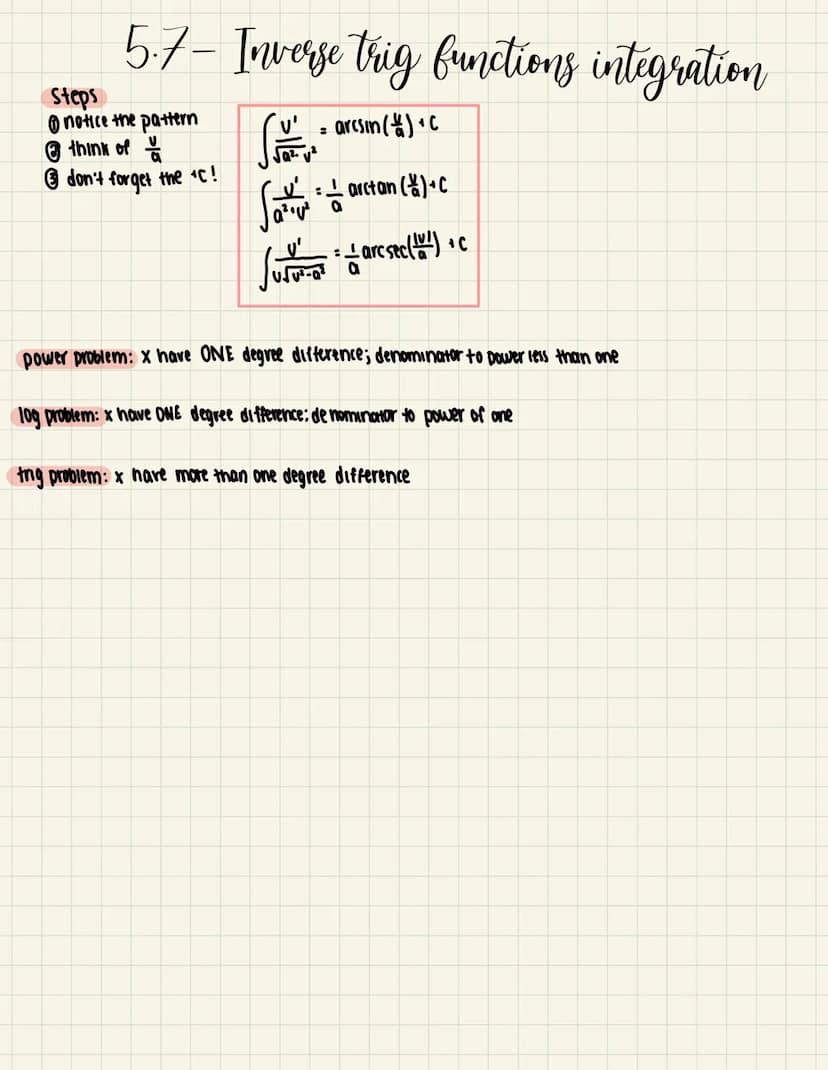 5.7- Inverse trig functions integration
Steps
① notice the pattern
② think of u/a
③ don't forget the +C!
∫ u'/√a²-u² = arcsin(u/a)+C
∫ u'/a²+u² = 1/a arctan(u/a)+C
∫ u'/u√u²-a² = 1/a arcsec(|u|/a)+C
power problem: x have ONE degree difference; denominator to power less than one
log problem: x have ONE degree difference: denominator to power of one
trig problem: x have more than one degree difference